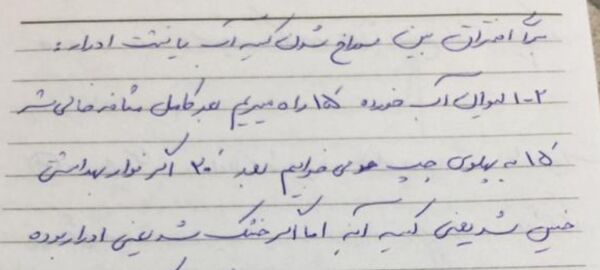 برای افتراق بین سوراخ شدن کیسه آب با نشت ادرار:
۱-۲ لیوان آب خورده ۱۵′ راه میریم بعد کامل مثانه خالی شد
۱۵′ به پهلوی چپ می خوابیم بعد ۳۰′ اگر نوار بهداشتی
خیس شد یعنی کیسه آبه اما اگر خشک شد یعنی ادرار بوده